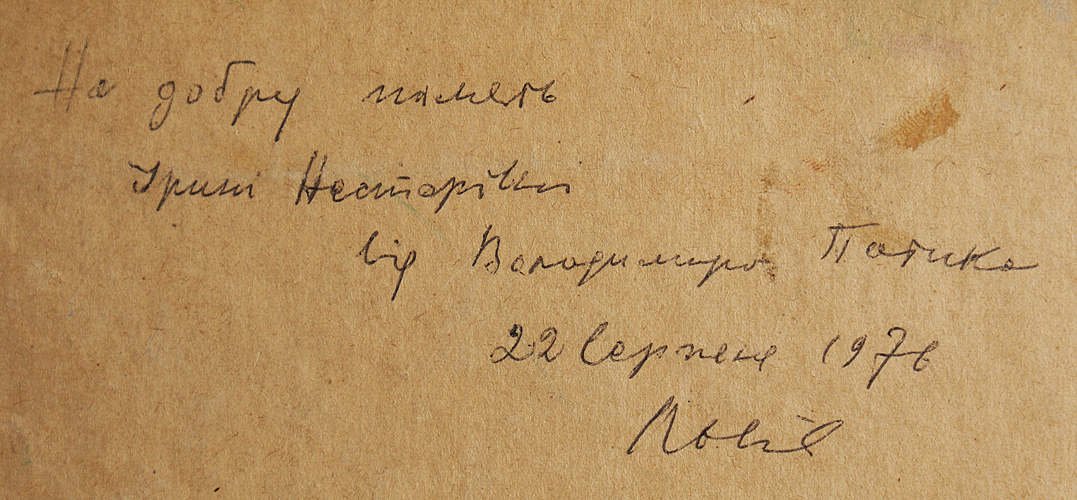 На добру память
Ірині
від Володимира Патика
22 Серпня 1976
Львів